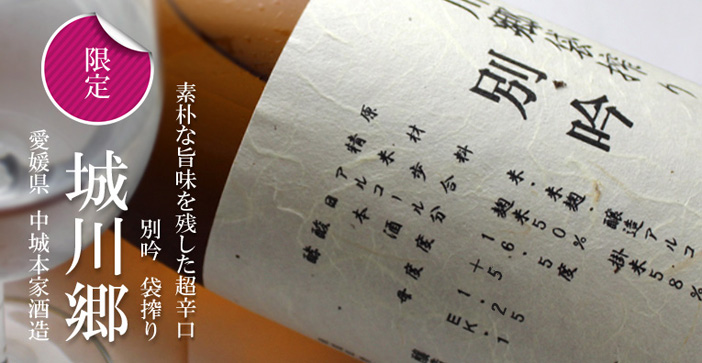 限定
素朴な旨味を残した超辛口
別吟 袋搾り
城川郷
愛媛県 中城本家酒造
川郷袋搾り
別吟
原材料 米・米麹・醸造アルコ
精米歩合 麹米50% 掛米58%
アルコール分 16.5度
日本酒度
酸度
酵母 EK・1